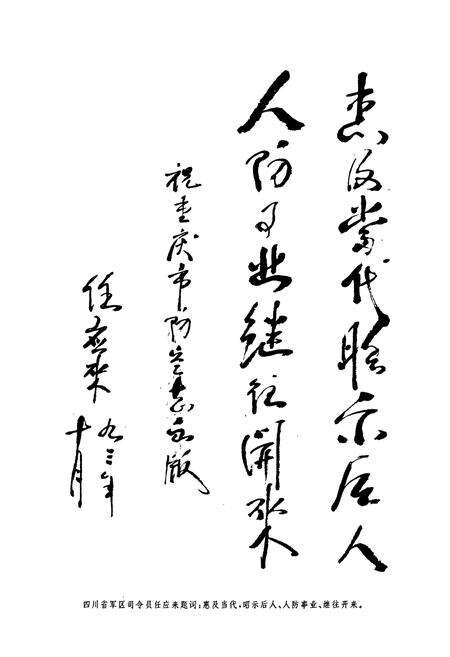 惠及當代昭示后人
人防事业继往開來
祝重庆市防空志出版
任应來
九三年
十月
四川省军区司令员任应来题词：惠及当代，昭示后人、人防事业、继往开来。